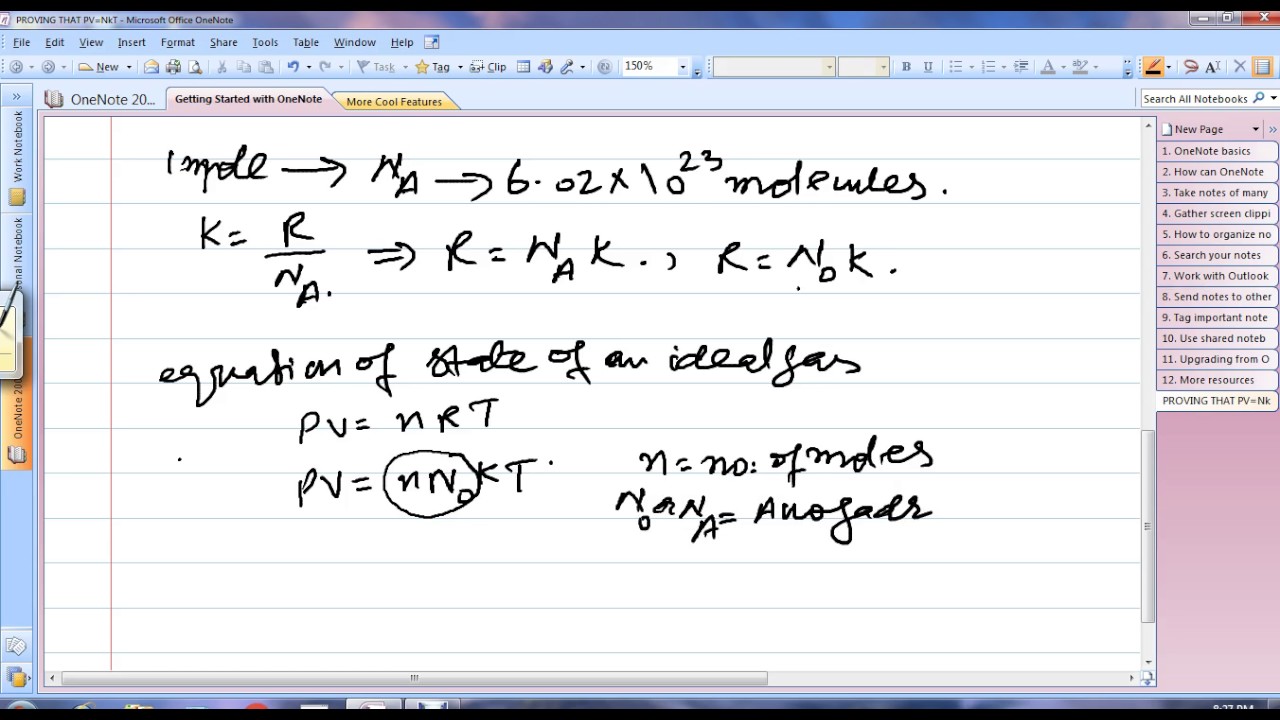 PROVING THAT PV=NkT - Microsoft Office OneNote
File Edit View Insert Format Share Tools Table Window Help
New Task Tag Clip 150% B U A ab A
OneNote 20... Getting Started with OneNote More Cool Features Search All Notebooks
Work Notebook
sonal Notebook
OneNote 200
New Page
1. OneNote basics
2. How can OneNote
3. Take notes of many
4. Gather screen clippi
5. How to organize no
6. Search your notes
7. Work with Outlook
8. Send notes to other
9. Tag important note
10. Use shared noteb
11. Upgrading from O
12. More resources
PROVING THAT PV=Nk
1 mole → N_A → 6.02 × 10^23 molecules.
K = R / N_A. ⇒ R = N_A K. , R = N_0 K.
equation of state of an ideal gas
PV = n R T
PV = n N_0 K T. n = no: of moles
N_0 or N_A = Avogadr
8:27 PM